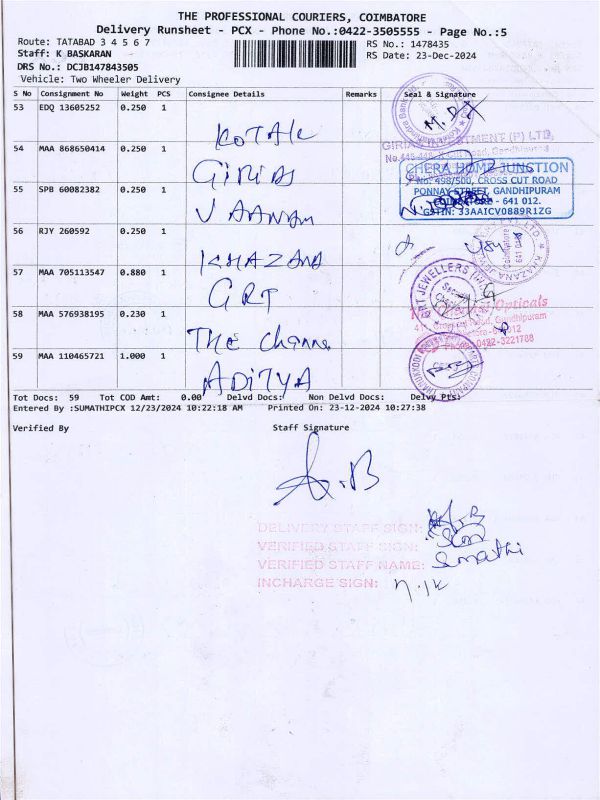 THE PROFESSIONAL COURIERS, COIMBATORE
Delivery Runsheet - PCX - Phone No.:0422-3505555 - Page No.:5
Route: TATABAD 3 4 5 6 7
RS No.: 1478435
Staff: K BASKARAN
RS Date: 23-Dec-2024
DRS No.: DCJB147843505
Vehicle: Two Wheeler Delivery
S No Consignment No Weight PCS Consignee Details Remarks Seal & Signature
53 EDQ 13605252 0.250 1
KOTAK
M.D
54 MAA 868650414 0.250 1
GIRIAS
GIRIAS INVESTMENT (P) LTD,
55 SPB 60082382 0.250 1
VAANAM
CHERA HOME JUNCTION
No. 498/500, CROSS CUT ROAD
PONNAY STREET, GANDHIPURAM
COIMBATORE - 641 012.
GSTIN: 33AAICV0889R1ZG
56 RJY 260592 0.250 1
KHAZANA
KHAZANA
57 MAA 705113547 0.880 1
GRT
GRT JEWELLERS
58 MAA 576938195 0.230 1
The Channa
Opticals
Gandhipuram
Phone: 0422-3221788
59 MAA 110465721 1.000 1
ADITYA
Tot Docs: 59 Tot COD Amt: 0.00 Delvd Docs: Non Delvd Docs: Delvy Pts:
Entered By :SUMATHIPCX 12/23/2024 10:22:18 AM Printed On: 23-12-2024 10:27:38
Verified By Staff Signature
A.B
DELIVERY STAFF SIGN:
VERIFIED STAFF SIGN:
VERIFIED STAFF NAME: Sumathi
INCHARGE SIGN: